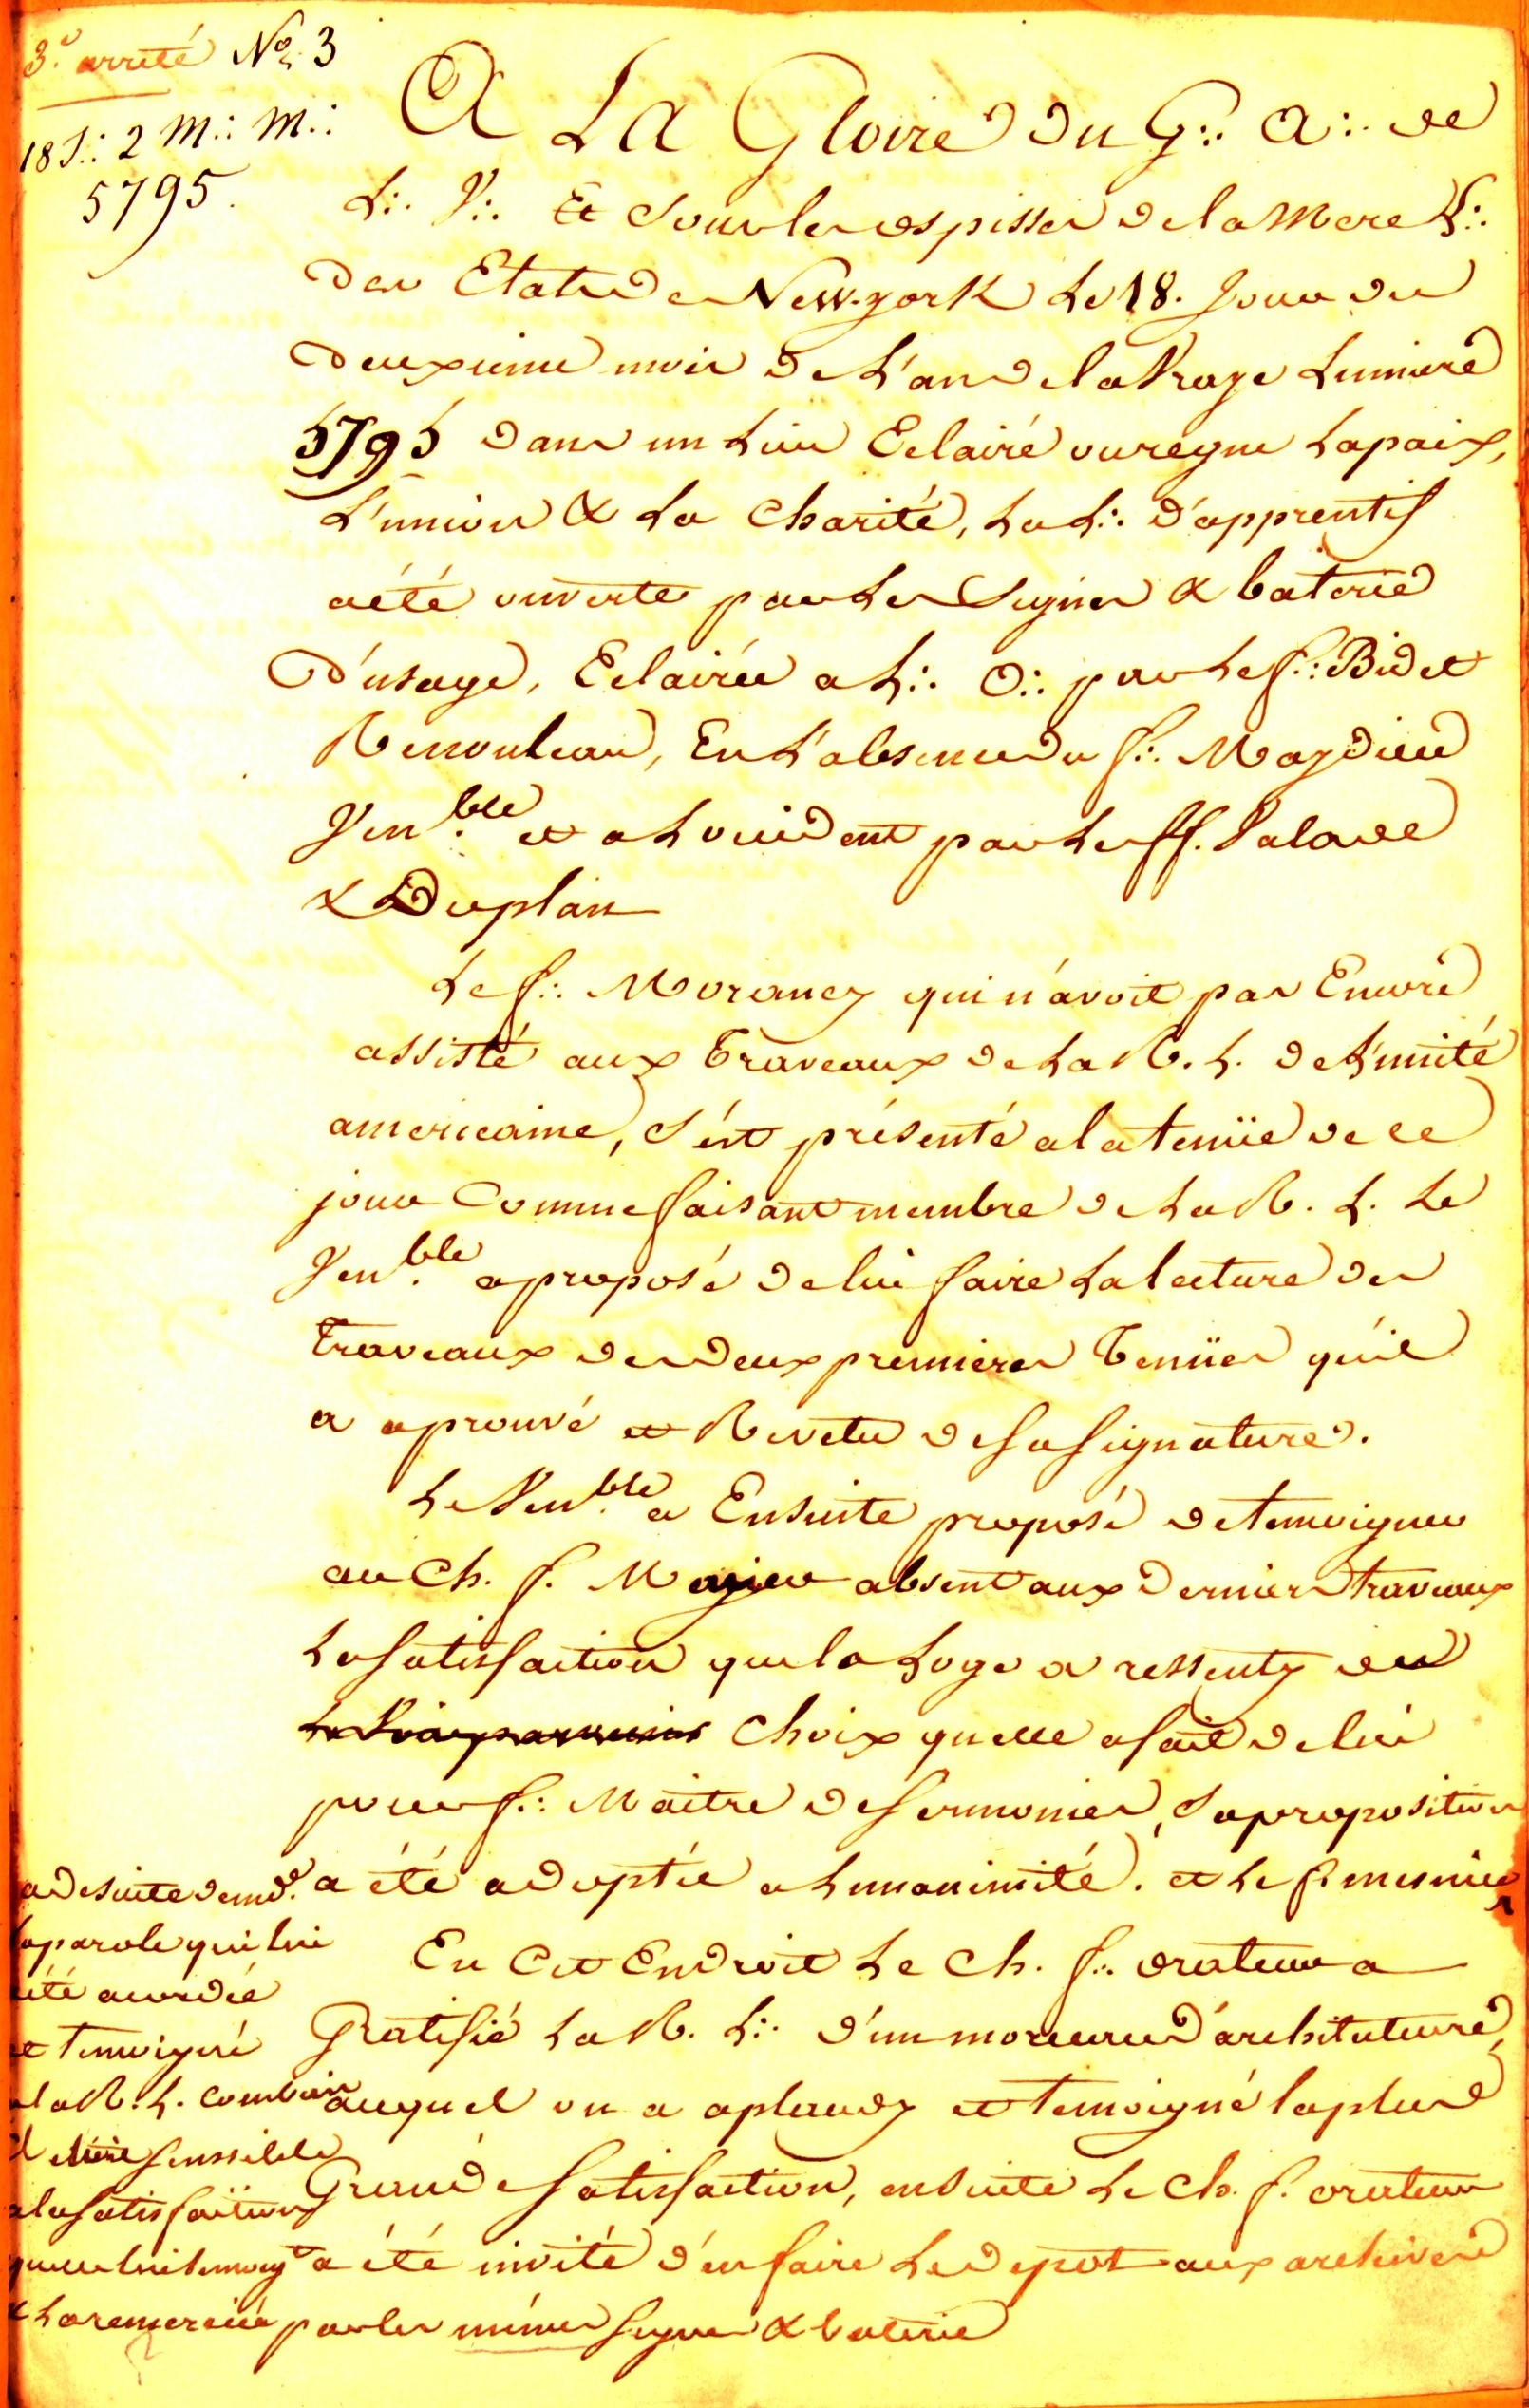 3e. arrité No. 3
18 J∴ 2 M∴ M∴
5795.
A LA Gloire du G∴ A∴ de
L∴ V∴ Et Sous les ospisses de la Mere L∴
des Etats de New-york Le 18. Jour du
deuxieme mois de L'an de la Vraye Lumiere
5795 dans un Lieu Eclairé ou regne La paix,
L'union & La Charité, La L∴ d'apprentif
a été ouverte par Les Signes & baterie
D'usage, Eclairée a L∴ O∴ par Le f∴ Bidet
Renouleau, En L'absence du f∴ Magdieu
Ven.ble et a L'occident par Les ff. Salave
& Duplan
Le f∴ Morancy qui n'avoit pas Encore
assisté aux Traveaux de La R. L. de L'unité
americaine, S'est présenté a la tenüe de ce
jour Comme faisant membre de La R. L. Le
Ven.ble a proposé de lui faire La lecture des
Traveaux des deux premieres Tenües qu'il
a aprouvé et Revetu de Sa Signature.
Le Ven.ble a Ensuite proposé de temoigner
au Ch. f. Majeu absent aux derniers traveaux
La Satisfaction que la Loge a ressenty du
Choix quelle a fait de lui
pour f∴ Maitre de Sermonies, Sa proposition
a été adoptée a L'unanimité. et Le f. mesnier
a desuite demdé.
la parole qui lui
a été acordée
et temoigné
a la R. L. combien
il etoit Senssible
a la Satisfaction
quelle lui temoigt
& L'a remercié par les mêmes Signes & baterie
En Cet Endroit Le Ch. f∴ orateur a
Gratifié La R. L∴ d'un morceau d'architeture,
auquel on a aplaudy et temoigné la plus
Grande Satisfaction, ensuite Le Ch. f. orateur
a été invité d'en faire Le depot aux archives